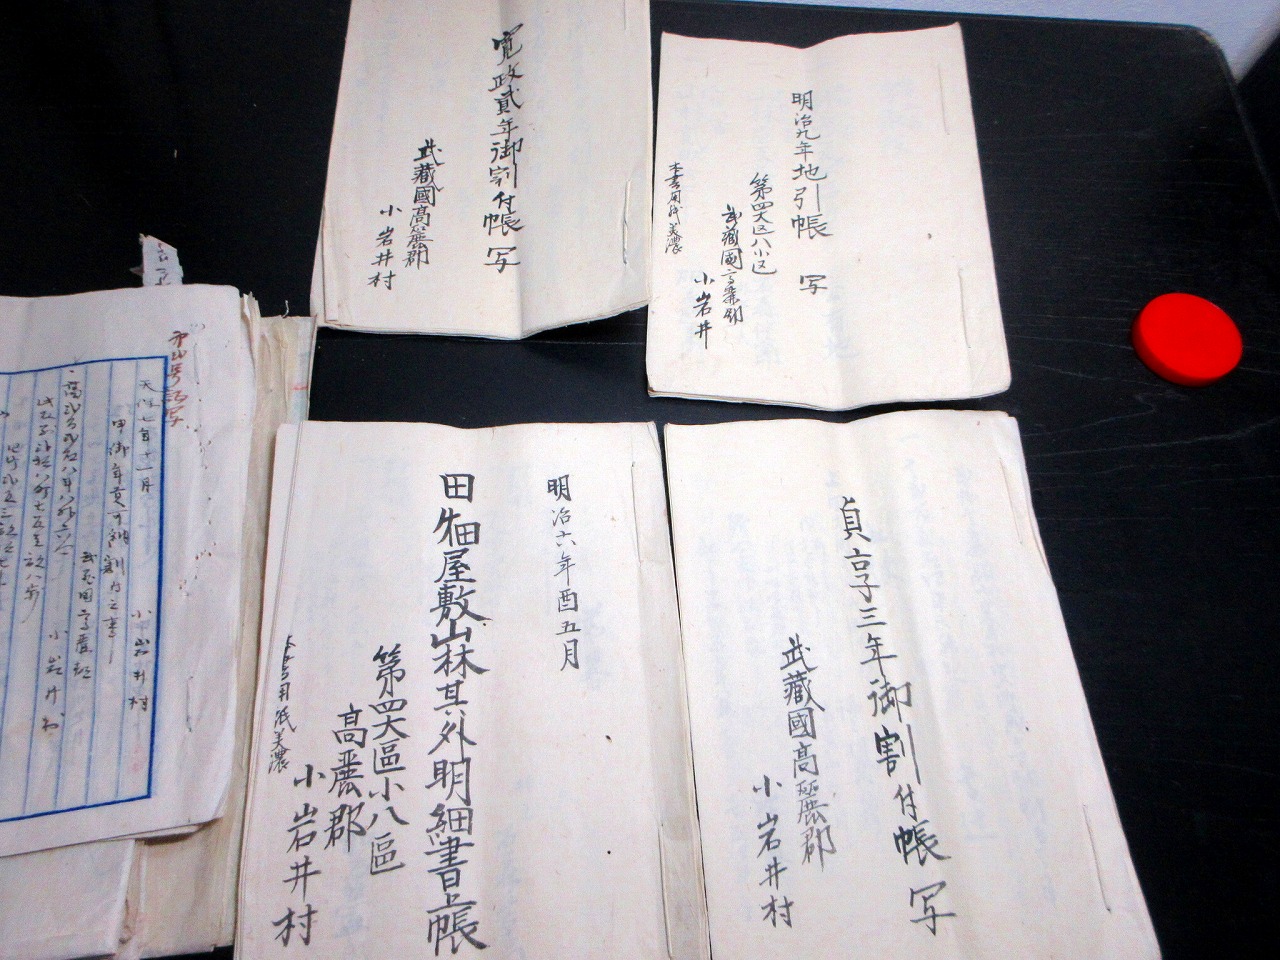 寛政貳年御割付帳 写
武藏國高麗郡
小岩井村
明治九年地引帳 写
第四大区八小区
武藏國高麗郡
小岩井
本書用紙美濃
明治六年酉五月
田畑屋敷山林其外明細書上帳
第四大區小八區
高麗郡
小岩井村
本書用紙美濃
貞享三年御割付帳 写
武藏國高麗郡
小岩井村
天保七年十一月
小岩井村
申御年貢可納割付之事
武蔵国高麗郡
小岩井村